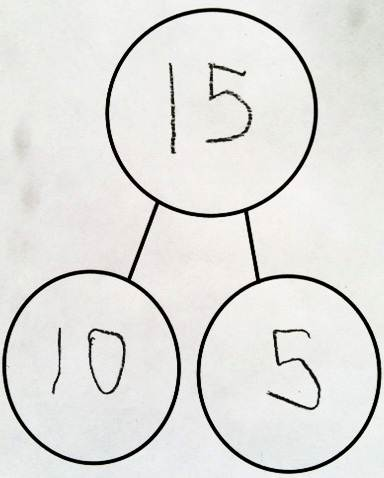 15
10 5